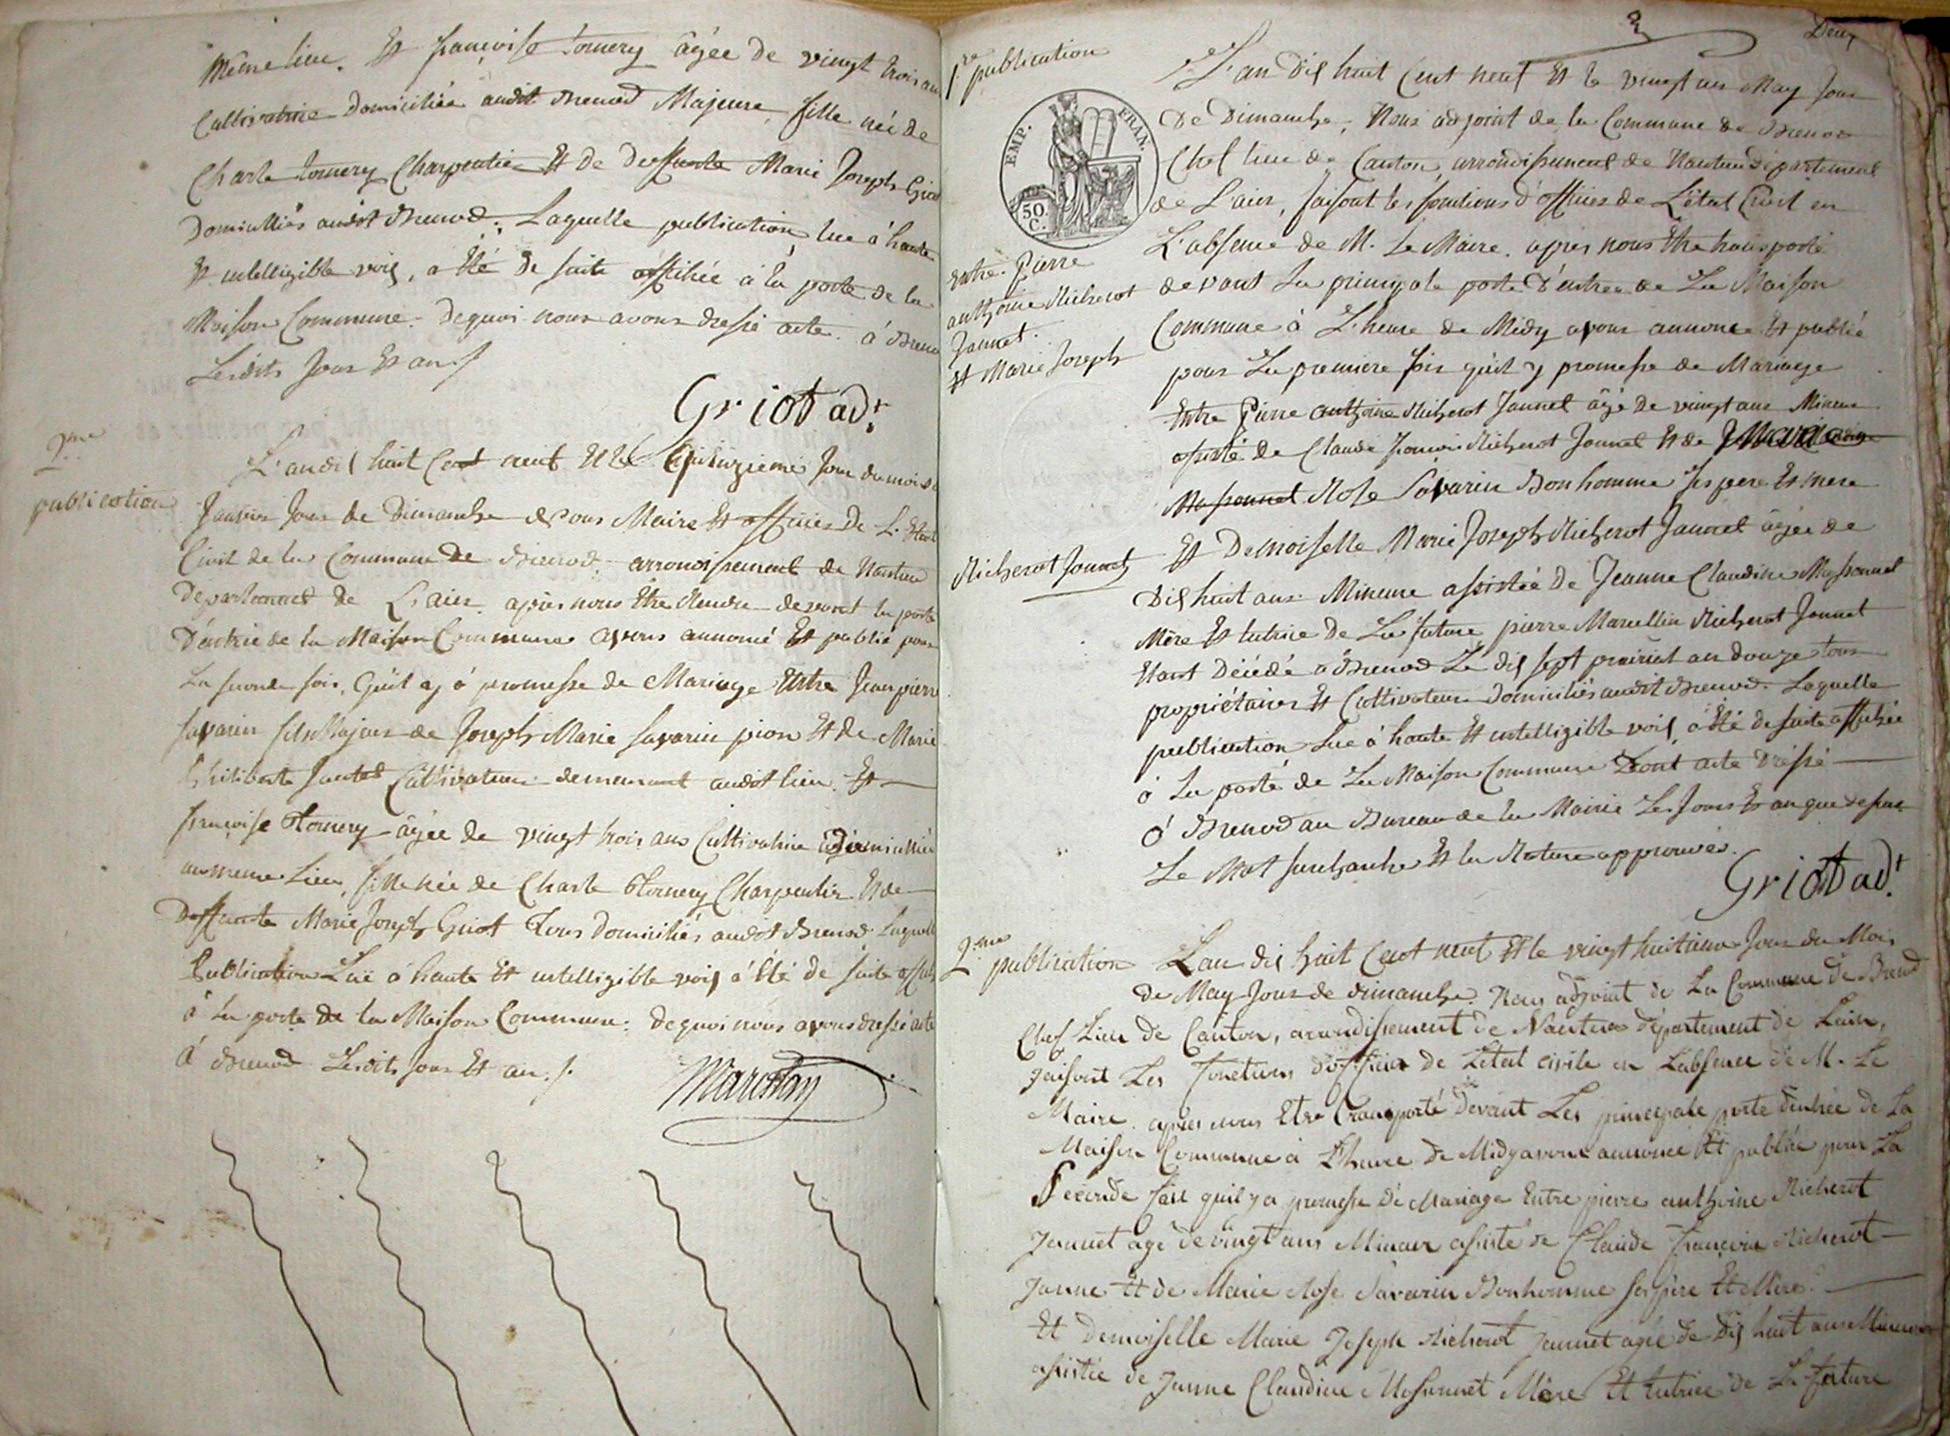 même lieu. Et françoise Tornery âgée de vingt trois ans
Cultivatrice Domiciliée audit Brenod Majeure, fille née de
Charle Tornery Charpentier Et de deffunte Marie Joseph Griot
Domiciliés audit Brenod. Laquelle publication, lue à haute
Et intelligible voix, a Eté de suite affichée à la porte de la
Maison Commune. dequoi nous avons dressé acte. à Brenod
Lesdits Jour Et an./
Griot adt.
2me
publication
L'an dix huit Cent neuf Et le Quinzieme Jour du mois de
Janvier Jour de Dimanche Nous Maire Et officier De L'Etat
Civil de la Commune de Brenod arrondissement de Nantua
Departement de L'ain, après nous Etre Rendu devant la porte
D'entrée de la Maison Commune avons annoncé Et publié pour
La seconde fois, Qu'il y à promesse de Mariage Entre Jean pierre
Savarin fils Majeur de Joseph Marie Savarin pion Et de Marie
Philiberte Cultivateur demeurant audit lieu. Et
françoise Tornery âgée de vingt trois ans Cultivatrice Domiciliée
au même Lieu, fille née de Charle Tornery Charpentier Et de
Deffunte Marie Joseph Griot Tous domiciliés audit Brenod Laquelle
Publication Lue à haute Et intelligible voix à Eté de suite affichée
à La porte de la Maison Commune. dequoi nous avons dressé acte
à Brenod Lesdits Jour Et an./.
3
Deux
1re publication
EMP. FRAN.
50. C.
entre Pierre
anthoine Richerot
Jannet.
Et Marie Joseph
Richerot Jannet
L'an Dix huit Cent neuf Et le vingt un May Jour
De Dimanche, Nous adjoint de la Commune de Brenod
Chef lieu de Canton, arrondissement de Nantua département
de L'ain, faisant les fonctions d'officier de L'état Civil en
L'absence de M. Le Maire. après nous Etre transporté
devant La principale porte D'entrée de La Maison
Commune à L'heure de Midy avons annoncé Et publié
pour La premiere fois qu'il y promesse de Mariage
Entre Pierre anthoine Richerot Jannet âgé de vingt ans Mineur
assisté de Claude françois Richerot Jannet Et de
Massonnet Rose Savarin Bonhomme ses pere Et mere
Et Demoiselle Marie Joseph Richerot Jannet âgée de
Dix huit ans Mineure assistée de Jeanne Claudine Massonnet
Mère Et tutrice de La future, pierre Marcellin Richerot Jannet
Etant Décédé à Brenod Le dix sept prairial an douze tous
propriétaires Et Cultivateurs Domiciliés audit Brenod. Laquelle
publication Lue à haute Et intelligible voix, à Eté de suite affichée
à La porte de La Maison Commune Dont acte Dressé
à Brenod au Bureau de la Mairie Les Jour Et an que dessus
Le Mot surchargé Et la Rature approuvés.
Griot adt.
2me publication
L'an dix huit Cent neuf Et le vingt huitieme Jour du Mois
De May Jour de dimanche. Nous adjoint de La Commune de Brenod
Chef Lieu de Canton, arrondissement de Nantua département de Lain,
faisant Les fonctions d'officier de L'etat civile en L'absence de M. Le
Maire. après nous Etre transporté devant Les principale porte d'entrée de La
Maison Commune à L'heure de Midy avons annoncé Et publié pour La
Seconde fois quil y a promesse de Mariage Entre pierre anthoine Richerot
Jannet agé de vingt ans Mineur assisté de Claude françois Richerot
Janne Et de Marie Rose Savarin Bonhomme ses père Et Mère.
Et Demoiselle Marie Joseph Richerot Jannet agée de Dix huit ans Mineure
assistée de Janne Claudine Massonnet Mère Et tutrice de La future